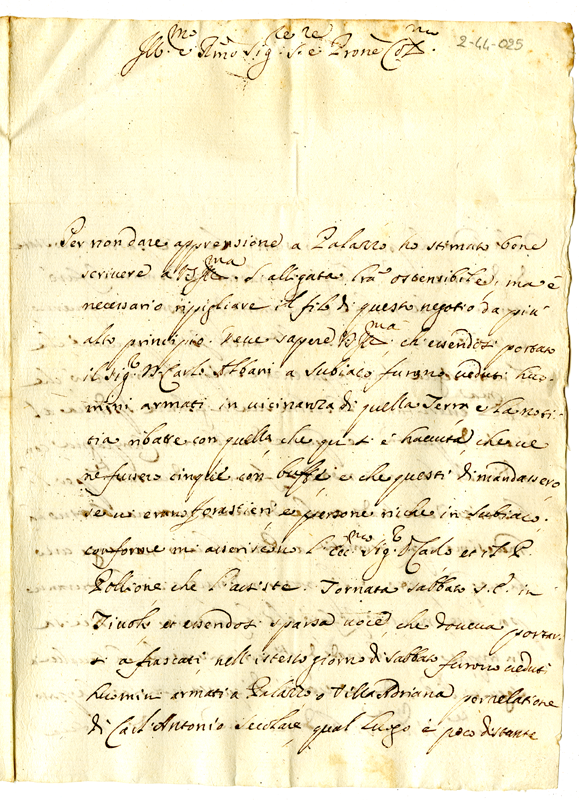 Ill.mo e Rmo Sig.re S.e e Prone Co.mo
2-44-025
Per non dare apprensione a Palazzo ho stimato bene
scrivere a V.S. Ill.ma l'alligata lra ostensibile, ma è
necessario ripigliare il filo di questo negotio da più
alto principio. Deve sapere V.S. Ill.ma, ch'essendosi portato
il Sig.r D. Carlo Albani a Subiaco furono veduti huo-
mini armati in vicinanza di quella Terra e la noti-
tia ribatte con quella, che qui si è havuta, che ve
ne fussero cinque con buffe e che questi dimandassero
se vi erano forastieri, e persone riche in Subiaco,
conforme mi asserirono l'Ecc.mo Sig.r D. Carlo et il P.
Pollione che l'assiste. Tornata sabbato S.E. in
Tivoli et essendosi sparsa voce, che doveva portar-
si a frascati, nell'istesso giorno di sabbato furono veduti
huomini armati a Palazzo o Villa Adriana per relatione
di Antonio qual luogo è poco distante